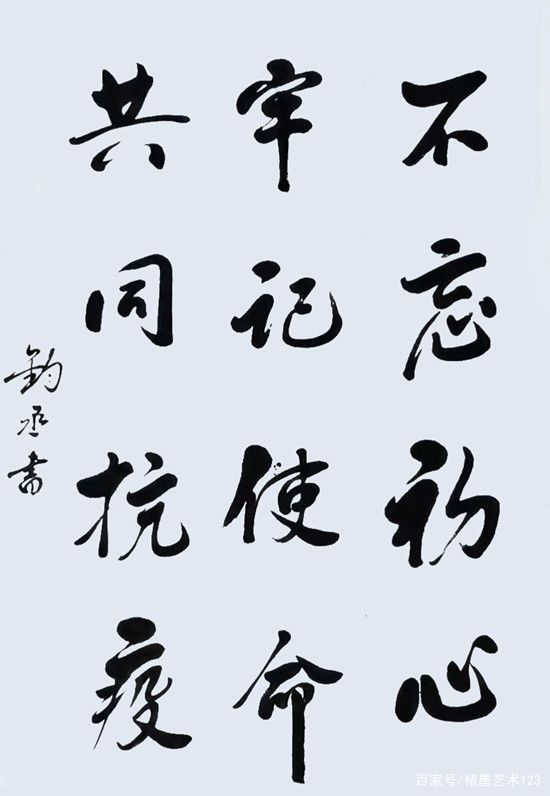 不忘初心
牢记使命
共同抗疫
钧丞书
百家号/楮墨艺术123